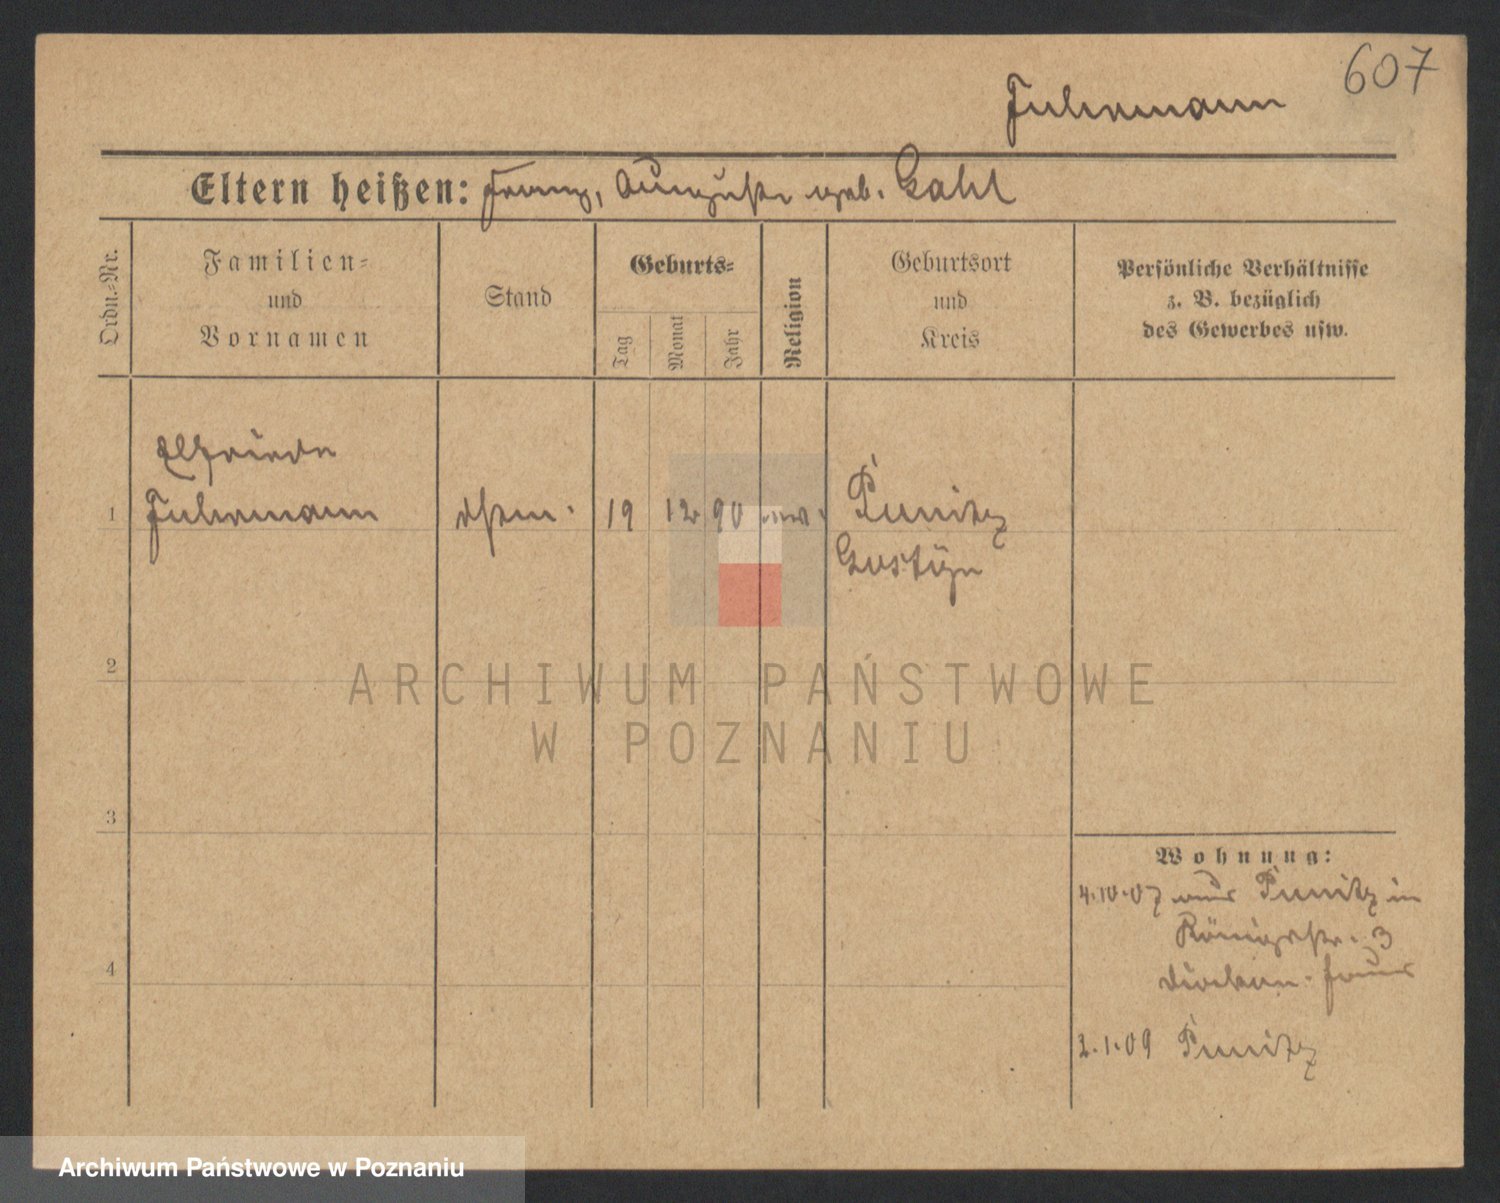 607
Fuhrmann
Eltern heißen: Franz, Auguste geb. Gahl
Ordn.-Nr.
Familien-
und
Vornamen
Stand
Geburts-
Tag
Monat
Jahr
Religion
Geburtsort
und
Kreis
Persönliche Verhältnisse
z. B. bezüglich
des Gewerbes usw.
Elfriede
1 Fuhrmann 19 12 90 Punitz
Gostyn
2
3
4
ARCHIWUM PAŃSTWOWE
W POZNANIU
Wohnung:
4.10.07 aus Punitz in
Königstr. 3
Diakon. Haus
2.1.09 Punitz
Archiwum Państwowe w Poznaniu